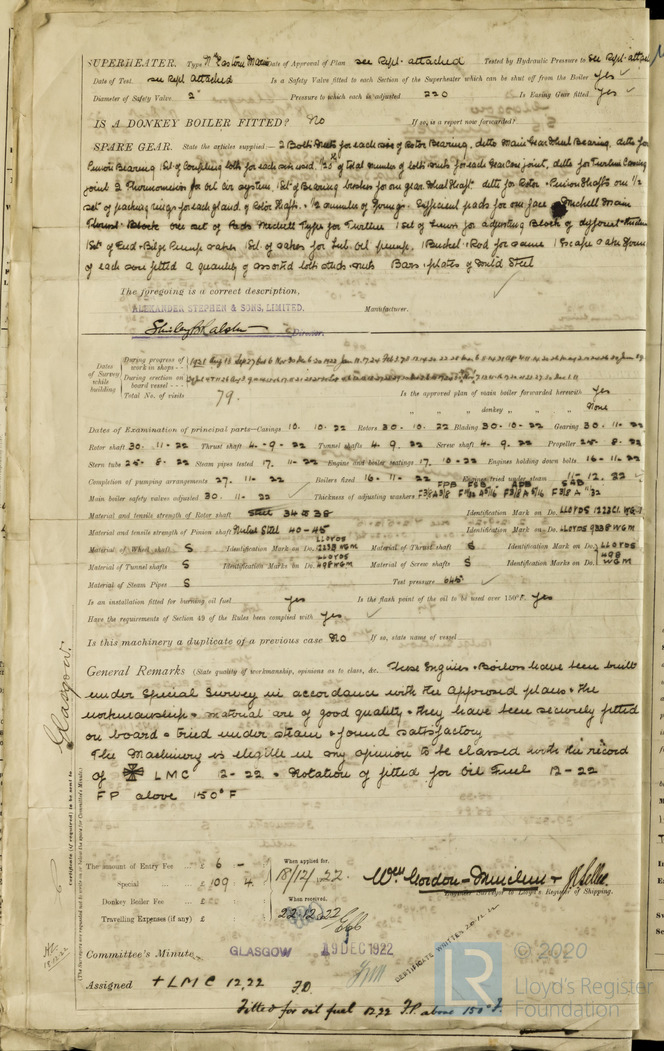 SUPERHEATER. Type Nth Eastern Marine Date of Approval of Plan see Rept. attached Tested by Hydraulic Pressure to see Rept. attached
Date of Test. see Rept attached Is a Safety Valve fitted to each Section of the Superheater which can be shut off from the Boiler yes
Diameter of Safety Valve 2" Pressure to which each is adjusted 220 Is Easing Gear fitted. yes
IS A DONKEY BOILER FITTED? No If so, is a report now forwarded?
SPARE GEAR. State the articles supplied:— 2 Bolts & Nuts for each size of Rotor Bearing, ditto Main Gear Wheel Bearing, ditto for
Pinion Bearing 1 Set of Coupling bolts for each size used. of total number of bolts & nuts for each Gear Case joint, ditto for Turbine Casing
joint 2 Thermometers for oil air system. 1 Set of Bearing bushes for one gear wheel shaft ditto for Rotor & Pinion Shafts one 1/2
set of packing rings for each gland of Rotor Shaft & 1/2 number of Springs. Sufficient pads for one face Michell Main
Thrust Block one set of Pads Michell Type for Turbine 1 Set of Liners for adjusting Block of different thickness
1 Set of Feed & Bilge Pump valves 1 Set of valves for Lub. oil pump. 1 Bucket & Rod for same 1 Escape valve Spring
of each size fitted a quantity of assorted bolts studs & nuts Bars & plates of Mild Steel
The foregoing is a correct description,
ALEXANDER STEPHEN & SONS, LIMITED. Manufacturer.
Director.
Dates of Survey while building
During progress of work in shops - -
During erection on board vessel - - -
Total No. of visits 79. Is the approved plan of main boiler forwarded herewith yes
" " " donkey " " " None
Dates of Examination of principal parts—Casings 10. 10. 22 Rotors 30. 10. 22 Blading 30. 10. 22 Gearing 30. 11. 22
Rotor shaft 30. 11. 22 Thrust shaft 4. 9. 22 Tunnel shafts 4. 9. 22 Screw shaft 4. 9. 22 Propeller 25. 8. 22
Stern tube 25. 8. 22 Steam pipes tested 17. 11. 22 Engine and boiler seatings 17. 10. 22 Engines holding down bolts 16. 11. 22
Completion of pumping arrangements 27. 11. 22 Boilers fixed 16. 11. 22 Engines tried under steam 11. 12. 22
Main boiler safety valves adjusted 30. 11. 22 Thickness of adjusting washers
Material and tensile strength of Rotor shaft Steel 34 @ 38 Identification Mark on Do.
Material and tensile strength of Pinion shaft Nickel Steel 40-45 Identification Mark on Do. LLOYDS 9338 WGM
Material of Wheel shaft S Identification Mark on Do. LLOYDS 1223B WGM Material of Thrust shaft S Identification Mark on Do. LLOYDS
Material of Tunnel shafts S Identification Marks on Do. LLOYDS 498 WGM Material of Screw shafts S Identification Marks on Do. 498 WGM
Material of Steam Pipes S Test pressure 645
Is an installation fitted for burning oil fuel yes Is the flash point of the oil to be used over 150°F. yes
Have the requirements of Section 49 of the Rules been complied with yes
Is this machinery a duplicate of a previous case No If so, state name of vessel
General Remarks (State quality of workmanship, opinions as to class, &c. These Engines & Boilers have been built
under Special Survey in accordance with the approved plans & the
workmanship & material are of good quality & they have been securely fitted
on board & tried under steam & found satisfactory
The Machinery is eligible in my opinion to be classed with the record
of ✠ LMC 12-22 & Notation of fitted for Oil Fuel 12-22
FP above 150°F
Glasgow.
Certificate (if required) to be sent to
(The Surveyors are requested not to write on or below the space for Committee's Minute.)
The amount of Entry Fee .. £ 6 - When applied for,
Special .. £ 109. 4 18/12/22
Donkey Boiler Fee .. £ When received,
Travelling Expenses (if any) £ 22.12.22
Wm Gordon-Maclean &
Engineer Surveyor to Lloyd's Register of Shipping.
Committee's Minute GLASGOW 19 DEC 1922
CERTIFICATE WRITTEN
Assigned + LMC 12,22 F.D.
Fitted for oil fuel 12,22 F.P. above 150°F.
© 2020
LR
Lloyd's Register
Foundation